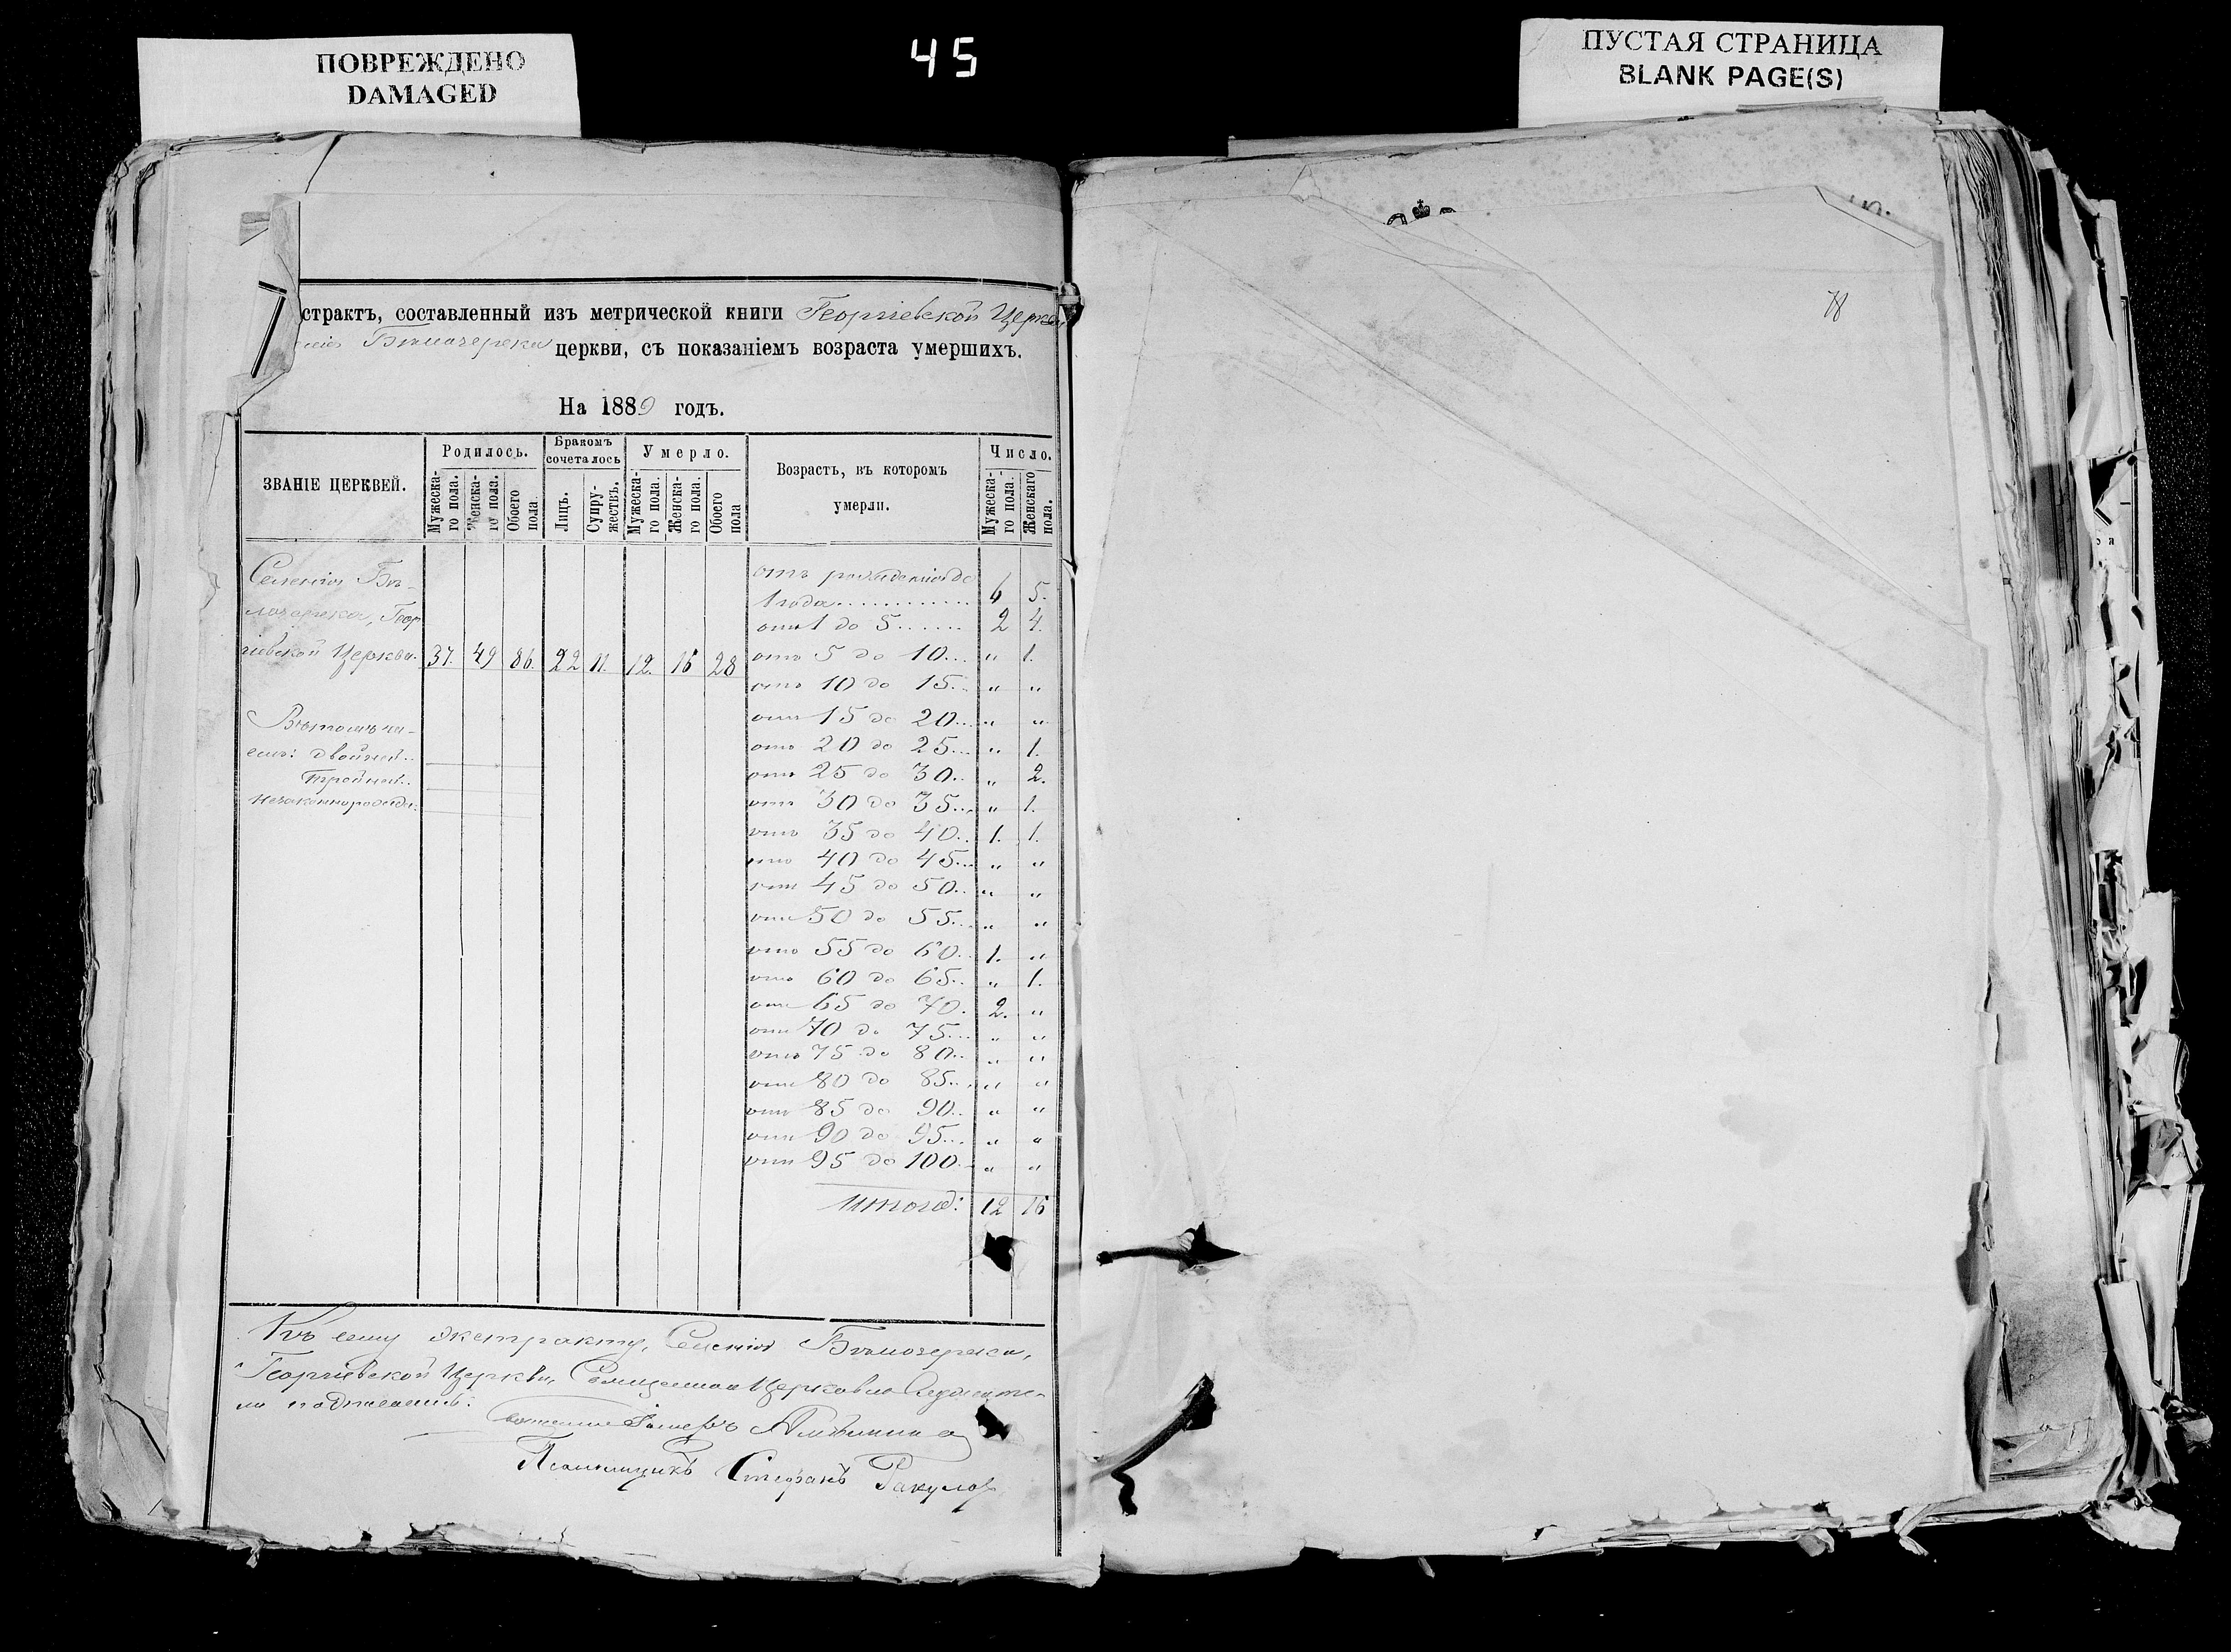 ПОВРЕЖДЕНО
DAMAGED
45
ПУСТАЯ СТРАНИЦА
BLANK PAGE(S)
78
страктъ, составленный изъ метрической книги Георгіевской Церкви
Бѣлочерека церкви, съ показаніемъ возраста умершихъ.
На 1889 годъ.
ЗВАНІЕ ЦЕРКВЕЙ.
Родилось.
Бракомъ сочеталось
Умерло.
Возрастъ, въ которомъ умерли.
Число.
Мужеска-го пола.
Женска-го пола.
Обоего пола.
Лицъ.
Супру-жествъ.
Мужеска-го пола.
Женска-го пола.
Обоего пола
Мужеска-го пола.
Женскаго пола.
Селенія Бѣ-
лочерека, Геор
гіевской Церкви. 37. 49 86. 22 11. 12. 16 28
Въ томъ чи-
слѣ: двойней..
тройней..
незаконнорожд.:
отъ рожденія до
1 года............ 6 5.
отъ 1 до 5....... 2 4.
отъ 5 до 10... " 1.
отъ 10 до 15.. " "
отъ 15 до 20... " "
отъ 20 до 25... " 1.
отъ 25 до 30.. " 2.
отъ 30 до 35... " 1.
отъ 35 до 40.. 1. 1.
отъ 40 до 45... " "
отъ 45 до 50.. " "
отъ 50 до 55... " "
отъ 55 до 60.. 1. "
отъ 60 до 65.. " 1.
отъ 65 до 70. 2. "
отъ 70 до 75... " "
отъ 75 до 80.. " "
отъ 80 до 85... " "
отъ 85 до 90.. " "
отъ 90 до 95... " "
отъ 95 до 100.. " "
итого: 12 16
Къ сему экстракту, Селенія Бѣлочерека,
Георгіевской Церкви, Священно Церковно Служите-
ли подписались:
Псаломщикъ Стефанъ